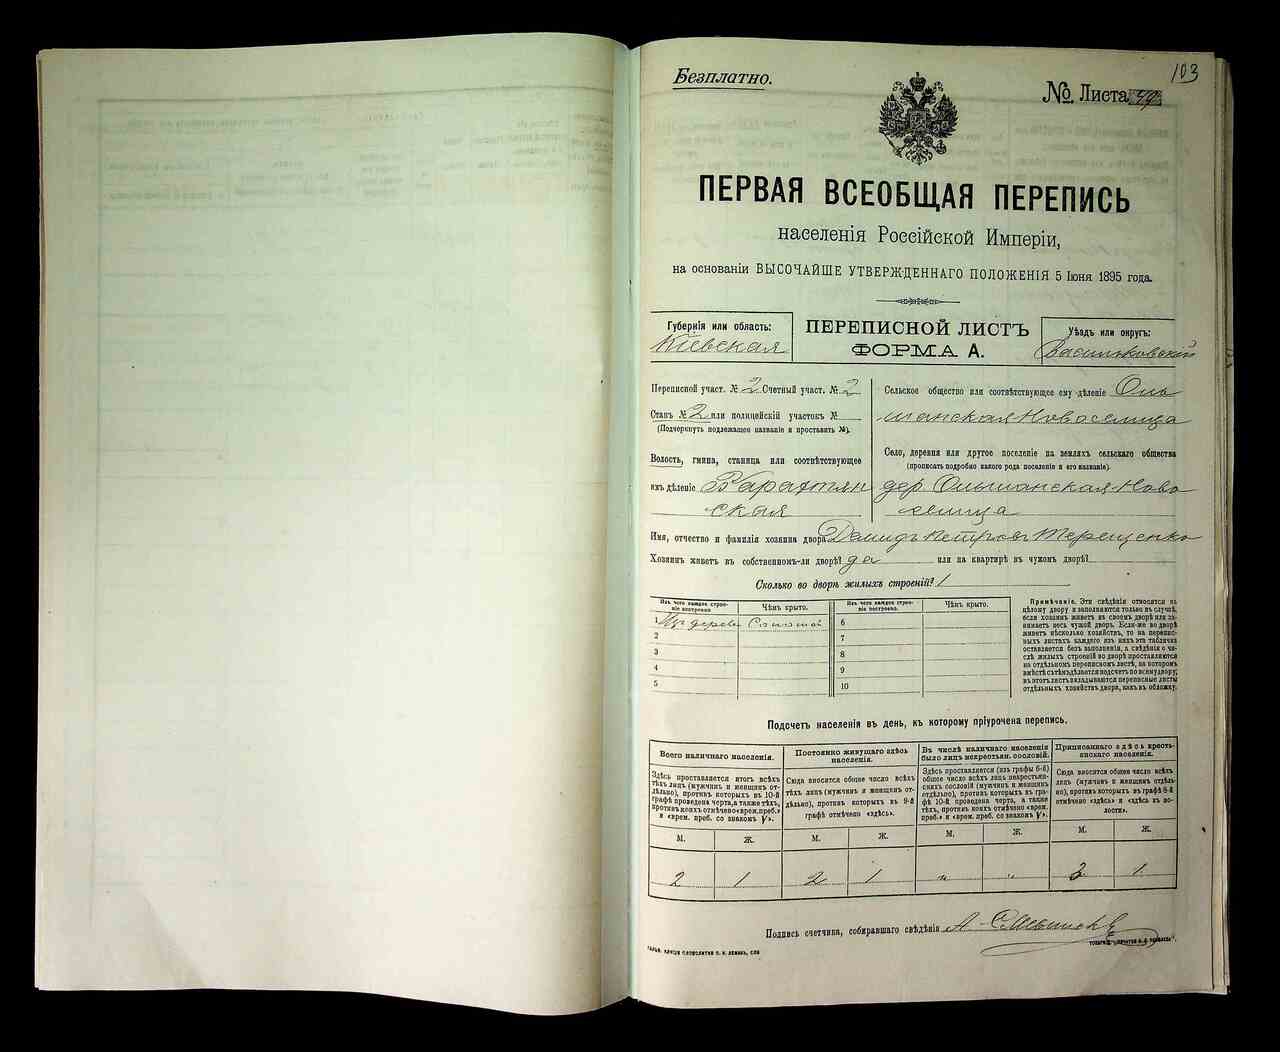 103
Безплатно.
№ Листа
ПЕРВАЯ ВСЕОБЩАЯ ПЕРЕПИСЬ
населенія Россійской Имперіи,
на основаніи ВЫСОЧАЙШЕ УТВЕРЖДЕННАГО ПОЛОЖЕНІЯ 5 Іюня 1895 года.
Губернія или область:
Кіевская
ПЕРЕПИСНОЙ ЛИСТЪ
ФОРМА А.
Уѣздъ или округъ:
Васильковскій
Переписной участ. № 2 Счетный участ. № 2
Станъ № 2 или полицейскій участокъ №
(Подчеркнуть подлежащее названіе и проставить №).
Волость, гмина, станица или соотвѣтствующее
имъ дѣленіе Барахтян
ская
Сельское общество или соотвѣтствующее ему дѣленіе Оль
шанская Новоселица
Село, деревня или другое поселеніе на земляхъ сельскаго общества
(прописать подробно какого рода поселеніе и его названіе).
дер. Ольшанская Ново
селица
Имя, отчество и фамилія хозяина двора Демидъ Петровъ Терещенко
Хозяинъ живетъ въ собственномъ-ли дворѣ? да или на квартирѣ въ чужомъ дворѣ?
Сколько во дворѣ жилыхъ строеній? 1
Изъ чего каждое строе-
ніе построено.
Чѣмъ крыто.
Изъ чего каждое строе-
ніе построено.
Чѣмъ крыто.
1 Изъ дерева Соломой
2
3
4
5
6
7
8
9
10
Примѣчаніе. Эти свѣдѣнія относятся къ
цѣлому двору и заполняются только въ случаѣ,
если хозяинъ живетъ въ своемъ дворѣ или за-
нимаетъ весь чужой дворъ. Если-же во дворѣ
живетъ нѣсколько хозяйствъ, то на перепис-
ныхъ листахъ каждаго изъ нихъ эта табличка
оставляется безъ заполненія, а свѣдѣнія о чи-
слѣ жилыхъ строеній во дворѣ проставляются
на отдѣльномъ переписномъ листѣ, на которомъ
вмѣстѣ съ тѣмъ дѣлается подсчетъ по всему двору;
въ этотъ листъ вкладываются переписные листы
отдѣльныхъ хозяйствъ двора, какъ въ обложку.
Подсчетъ населенія въ день, къ которому пріурочена перепись.
Всего наличнаго населенія.
Здѣсь проставляется итогъ всѣхъ
тѣхъ лицъ (мужчинъ и женщинъ от-
дѣльно), противъ которыхъ въ 10-й
графѣ проведена черта, а также тѣхъ,
противъ коихъ отмѣчено «врем. преб.»
и «врем. преб. со знакомъ V».
Постоянно живущаго здѣсь
населенія.
Сюда вносится общее число всѣхъ
тѣхъ лицъ (мужчинъ и женщинъ от-
дѣльно), противъ которыхъ въ 9-й
графѣ отмѣчено «здѣсь».
Въ числѣ наличнаго населенія
было лицъ некрестьян. сословій.
Здѣсь проставляется (изъ графы 6-й)
общее число всѣхъ лицъ некрестьян-
скихъ сословій (мужчинъ и женщинъ
отдѣльно), противъ которыхъ въ гра-
фѣ 10-й проведена черта, а также
тѣхъ, противъ коихъ отмѣчено «врем.
преб.» и «врем. преб. со знакомъ V».
Приписаннаго здѣсь кресть-
янскаго населенія.
Сюда вносится общее число всѣхъ
лицъ (мужчинъ и женщинъ отдѣль-
но), противъ которыхъ въ графѣ 8-й
отмѣчено «здѣсь» и «здѣсь въ во-
лости».
М. Ж. М. Ж. М. Ж. М. Ж.
2 1 2 1 " " 3 1
Подпись счетчика, собиравшаго свѣдѣнія А.